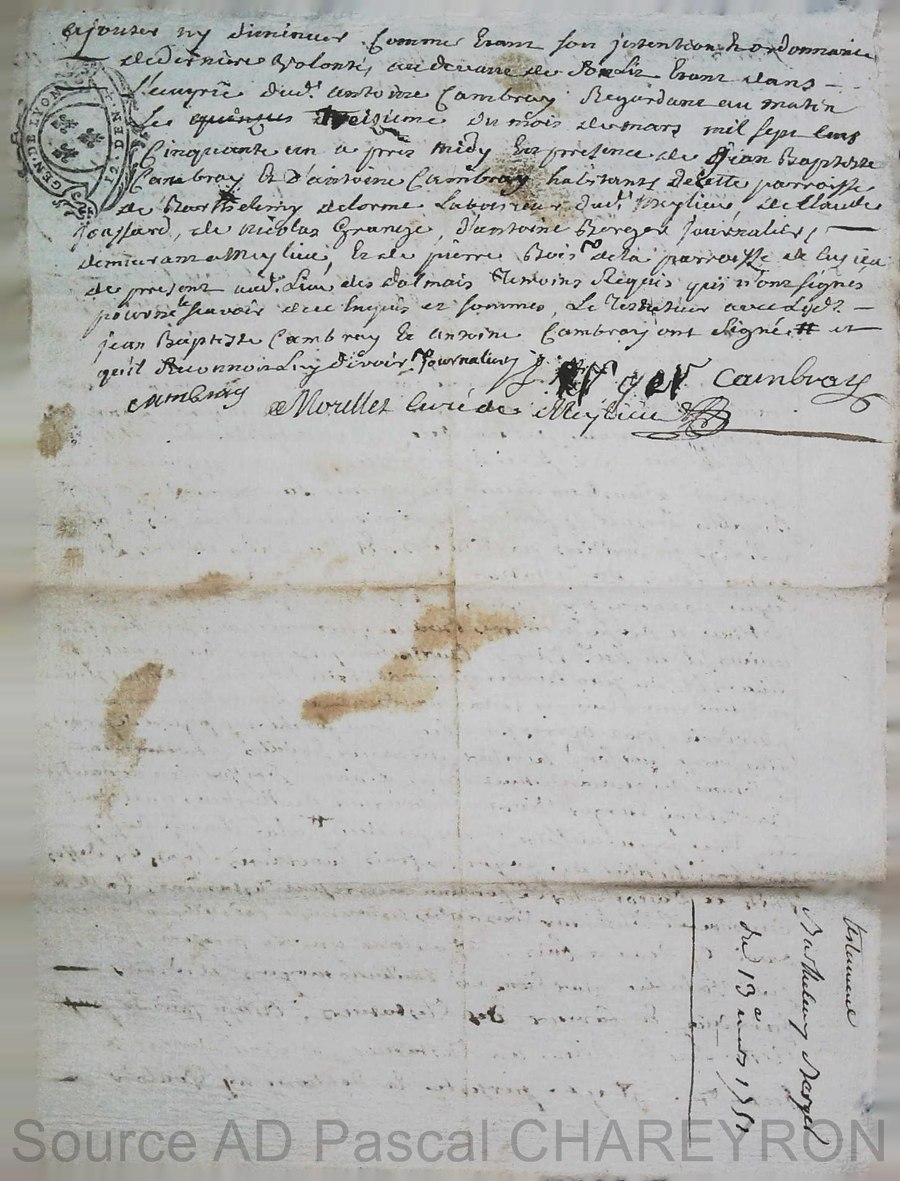 ajouter ny diminuer Comme Etant son jntention & ordonnance
de derniere Volonté, au devant de Son Lit Etant dans
l'ecurie dud. antoine Cambray Regardant au matin
Le treizieme du mois de mars mil sept Cens
Cinquante un a près midy En presence de Jean Baptiste
Cambray Et D'antoine Cambray habitants de cette parroisse
de Barthelemy delorme Laboureur dud. Meylieu, de Claude
Joassard, de nicolas Grange, d'antoine Berger Journaliers
demeurant a Meylieu, Et de pierre Bois de la parroisse de
de present aud. Lieu des dalmais Temoins Requis qui n'ont signés
pour ne le scavoir de ce Enquis et sommés, Le Testateur avec Lesd.
jean Baptiste Cambray Et antoine Cambray ont signé # et
qu'il Journalier
cambray
Berger cambray
Moullet Curé de Meylieu
GEN·DE LYON
12 DEN·
testament
Barthelemy Berger
du 13e mars 1751
Source AD Pascal CHAREYRON